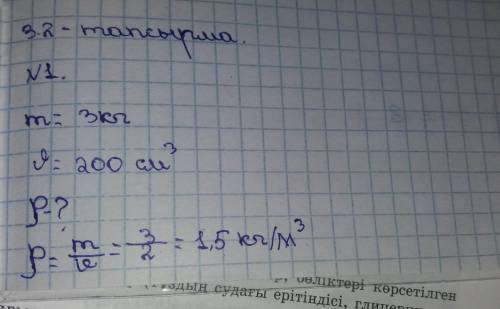 3.2 - тапсырма.
№1.
m = 3кг
V = 200 см³
ρ - ?
ρ = m/V = 3/2 = 1,5 кг/м³
бөліктері көрсетілген
судағы ерітіндісі,